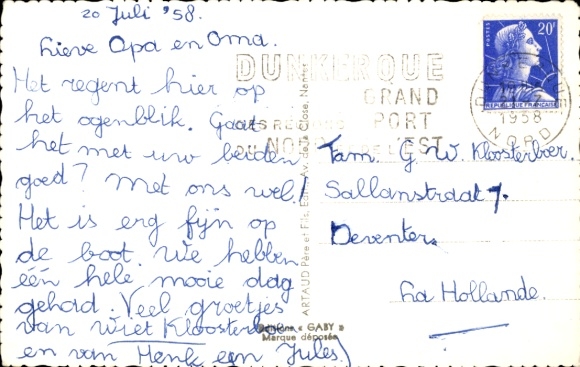 20 Juli '58.
Lieve Opa en Oma.
Het regent hier op
het ogenblik. Gaat
het met uw beiden
goed? Met ons wel!
Het is erg fijn op
de boot. We hebben
één hele mooie dag
gehad. Veel groetjes
van Wiet Kloosterboer
en van Henk een Jules.
DUNKERQUE
GRAND
PORT
NORD
L'EST
POSTES
20F
REPUBLIQUE FRANÇAISE
1958
NORD
Fam. G. W. Kloosterboer.
Sallanstraat 7.
Deventer.
La Hollande.
ARTAUD Père et Fils, Edit., Av. de la Close, Nantes
Editions « GABY »
Marque déposée